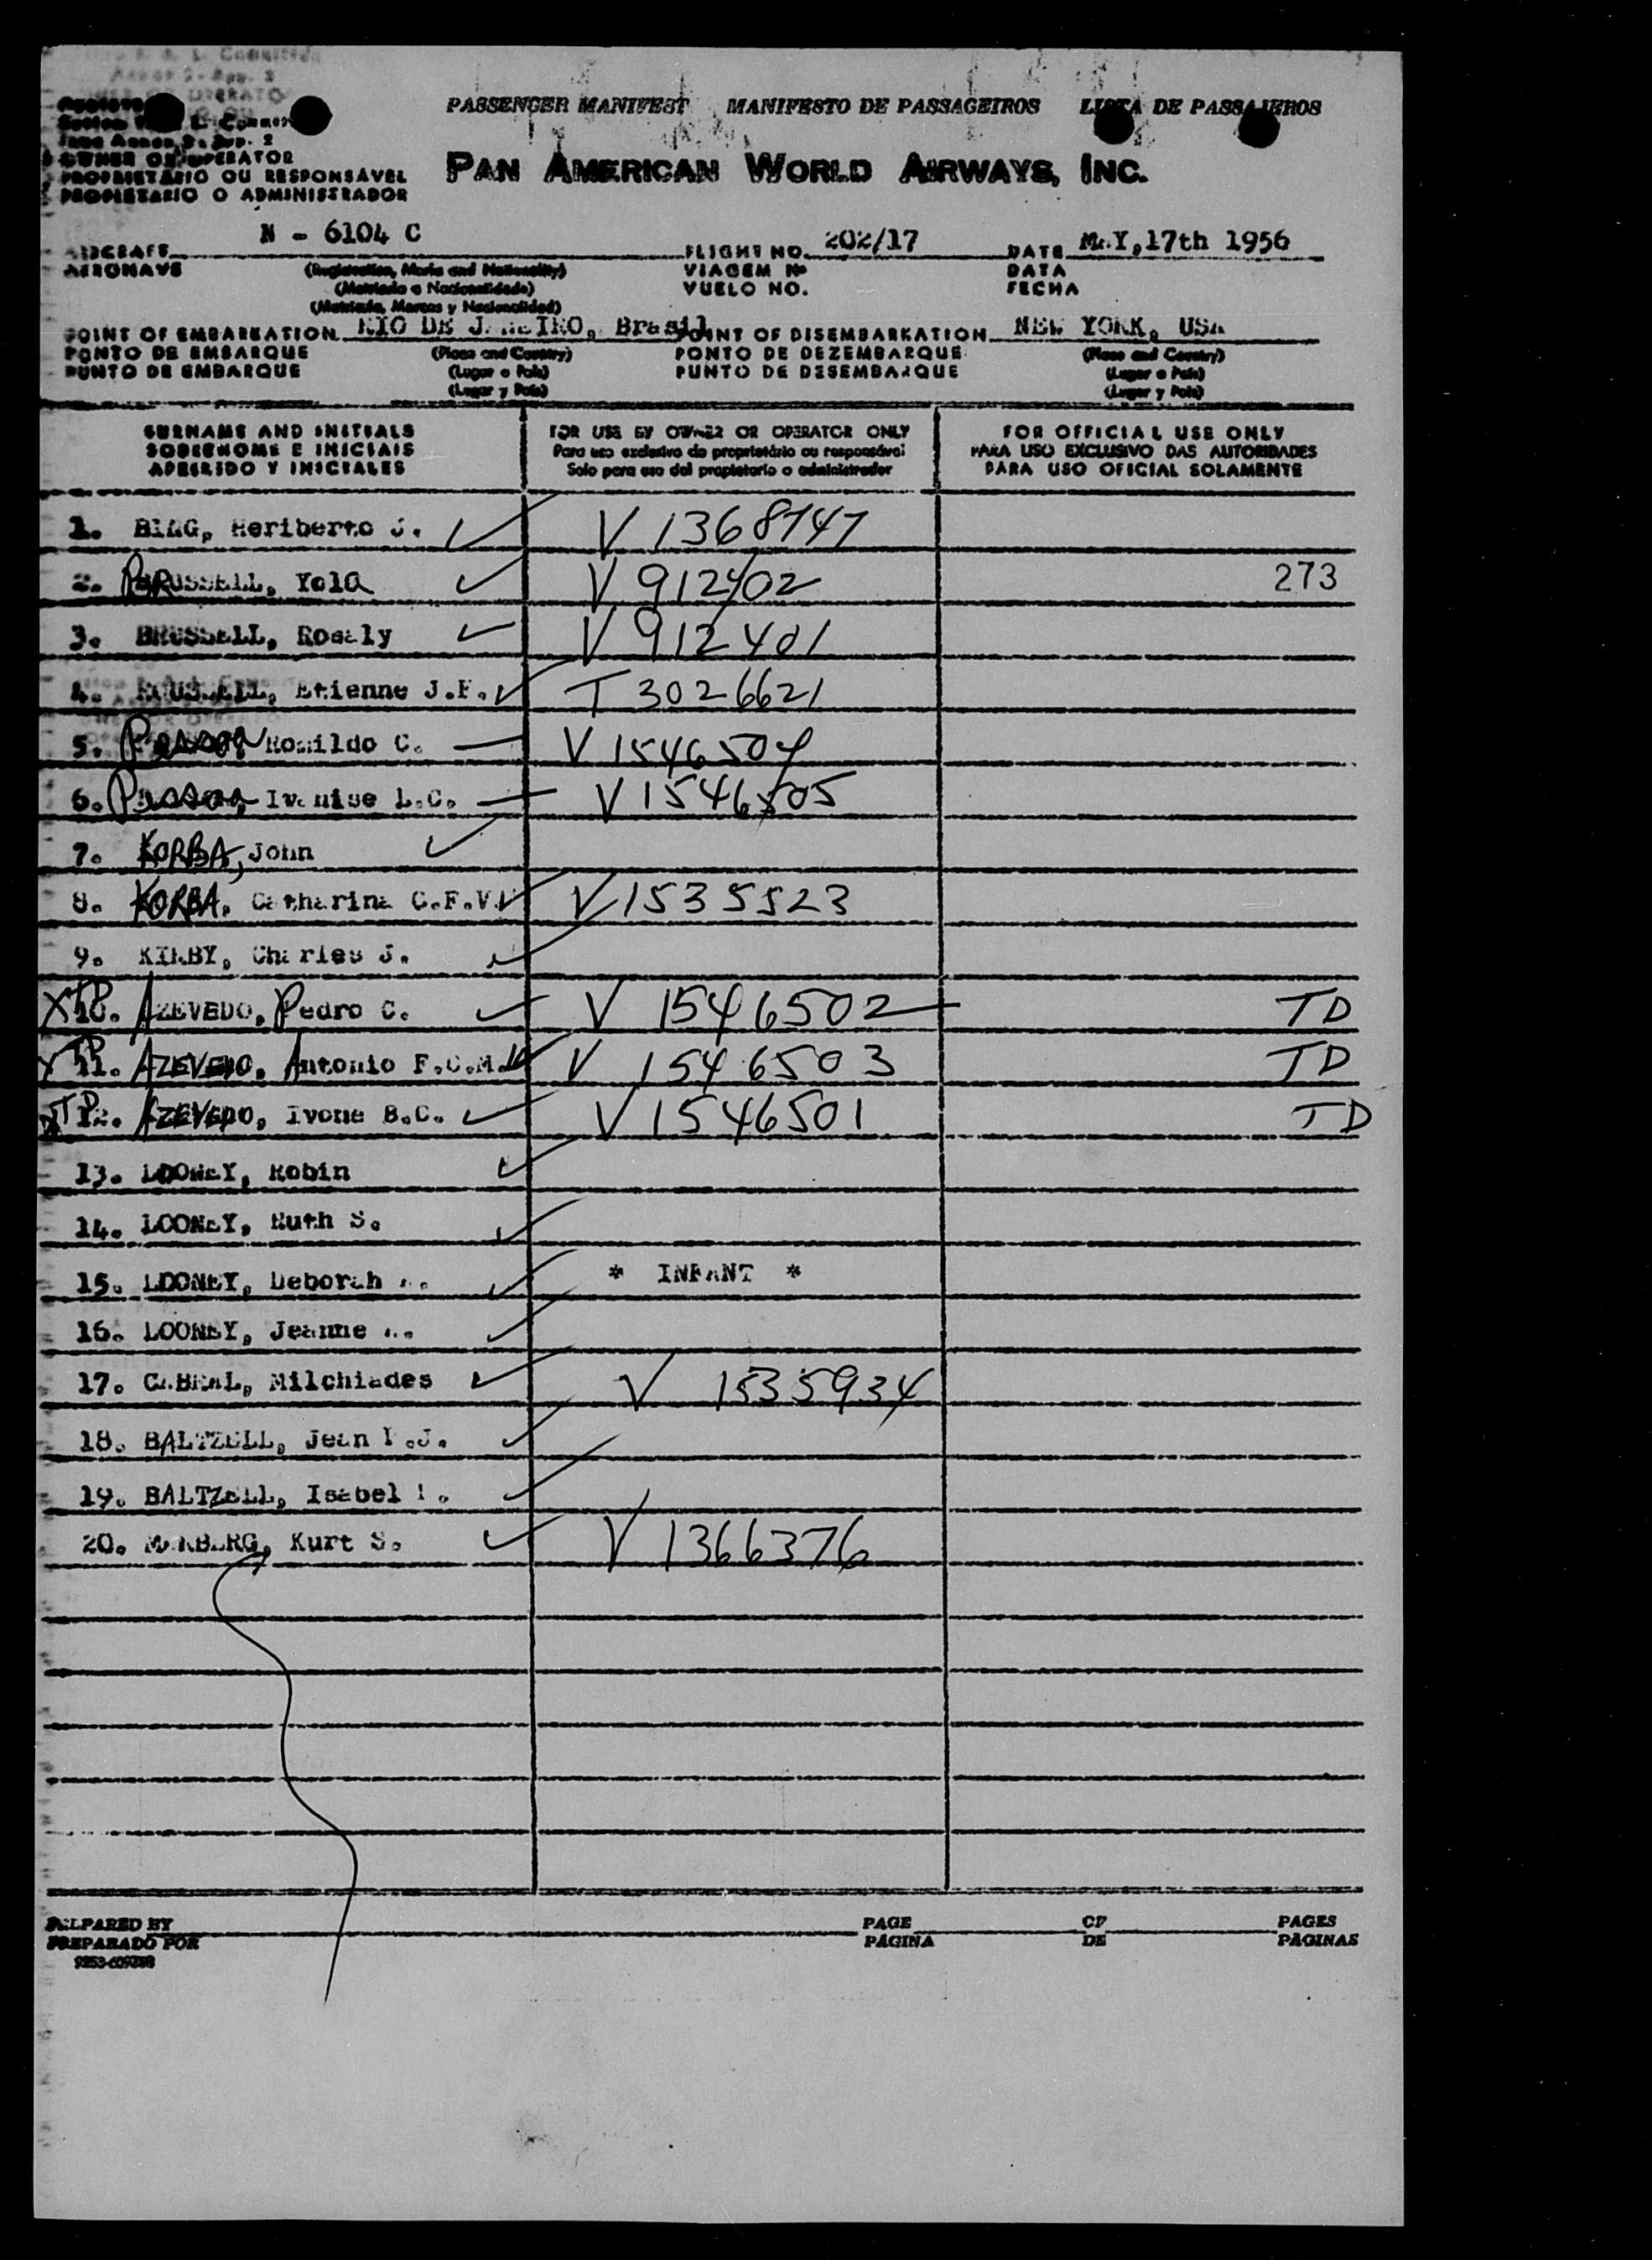 PASSENGER MANIFEST MANIFESTO DE PASSAGEIROS LISTA DE PASSAJEROS
Annex 2 - App. 2
OWNER OR OPERATOR
PROPRIETARIO OU RESPONSAVEL
PROPIETARIO O ADMINISTRADOR
PAN AMERICAN WORLD AIRWAYS, INC.
AIRCRAFT N - 6104 C FLIGHT NO. 202/17 DATE MAY, 17th 1956
AERONAVE (Registration, Marks and Nationality) VIAGEM Nº DATA
(Matricula e Nacionalidade) VUELO NO. FECHA
(Matricula, Marcas y Nacionalidad)
POINT OF EMBARKATION RIO DE JANEIRO, Brasil POINT OF DISEMBARKATION NEW YORK, USA
PONTO DE EMBARQUE (Place and Country) PONTO DE DEZEMBARQUE (Place and Country)
PUNTO DE EMBARQUE (Lugar e Pais) PUNTO DE DESEMBARQUE (Lugar e Pais)
(Lugar y Pais) (Lugar y Pais)
SURNAME AND INITIALS FOR USE BY OWNER OR OPERATOR ONLY FOR OFFICIAL USE ONLY
SOBRENOME E INICIAIS Para uso exclusivo do proprietário ou responsável PARA USO EXCLUSIVO DAS AUTORIDADES
APELLIDO Y INICIALES Solo para uso del propietario o administrador PARA USO OFICIAL SOLAMENTE
1. Heriberto J. V 1368747
2. BRUSSELL, Yola V 912402 273
3. BRUSSELL, Rosaly V 912401
4. BRUSSELL, Etienne J.F. T 3026621
5. Romildo C. V 1546504
6. Ivanise L.C. V 1546505
7. KORBA, John
8. KORBA, Catharina C.F.V. V 1535523
9. KIRBY, Charles J.
X TD 10. AZEVEDO, Pedro C. V 1546502 TD
X TD 11. AZEVEDO, Antonio F.C.M. V 1546503 TD
X TD 12. AZEVEDO, Ivone B.C. V 1546501 TD
13. LOONEY, Robin
14. LOONEY, Ruth S.
15. LOONEY, Deborah * INFANT *
16. LOONEY, Jeanne
17. CABRAL, Milchiades V 1535934
18. BALTZELL, Jean
19. BALTZELL, Isabel
20. Kurt S. V 1366376
PREPARED BY PAGE OF PAGES
PREPARADO POR PAGINA DE PAGINAS